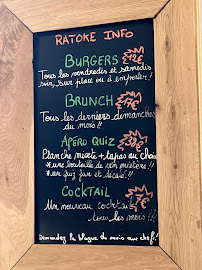 RATOKE INFO
BURGERS 12€
Tous les vendredis et samedis
sur place ou à emporter!
BRUNCH 17€
Tous les derniers dimanches
du mois!!
APÉRO QUIZ
Planche mixte + tapas au choix
*une bouteille de vin
*un quiz fun et décalé!!
COCKTAIL 7€
Un nouveau cocktail
tous les mois!!!
Demandez la blague du mois aux chefs!